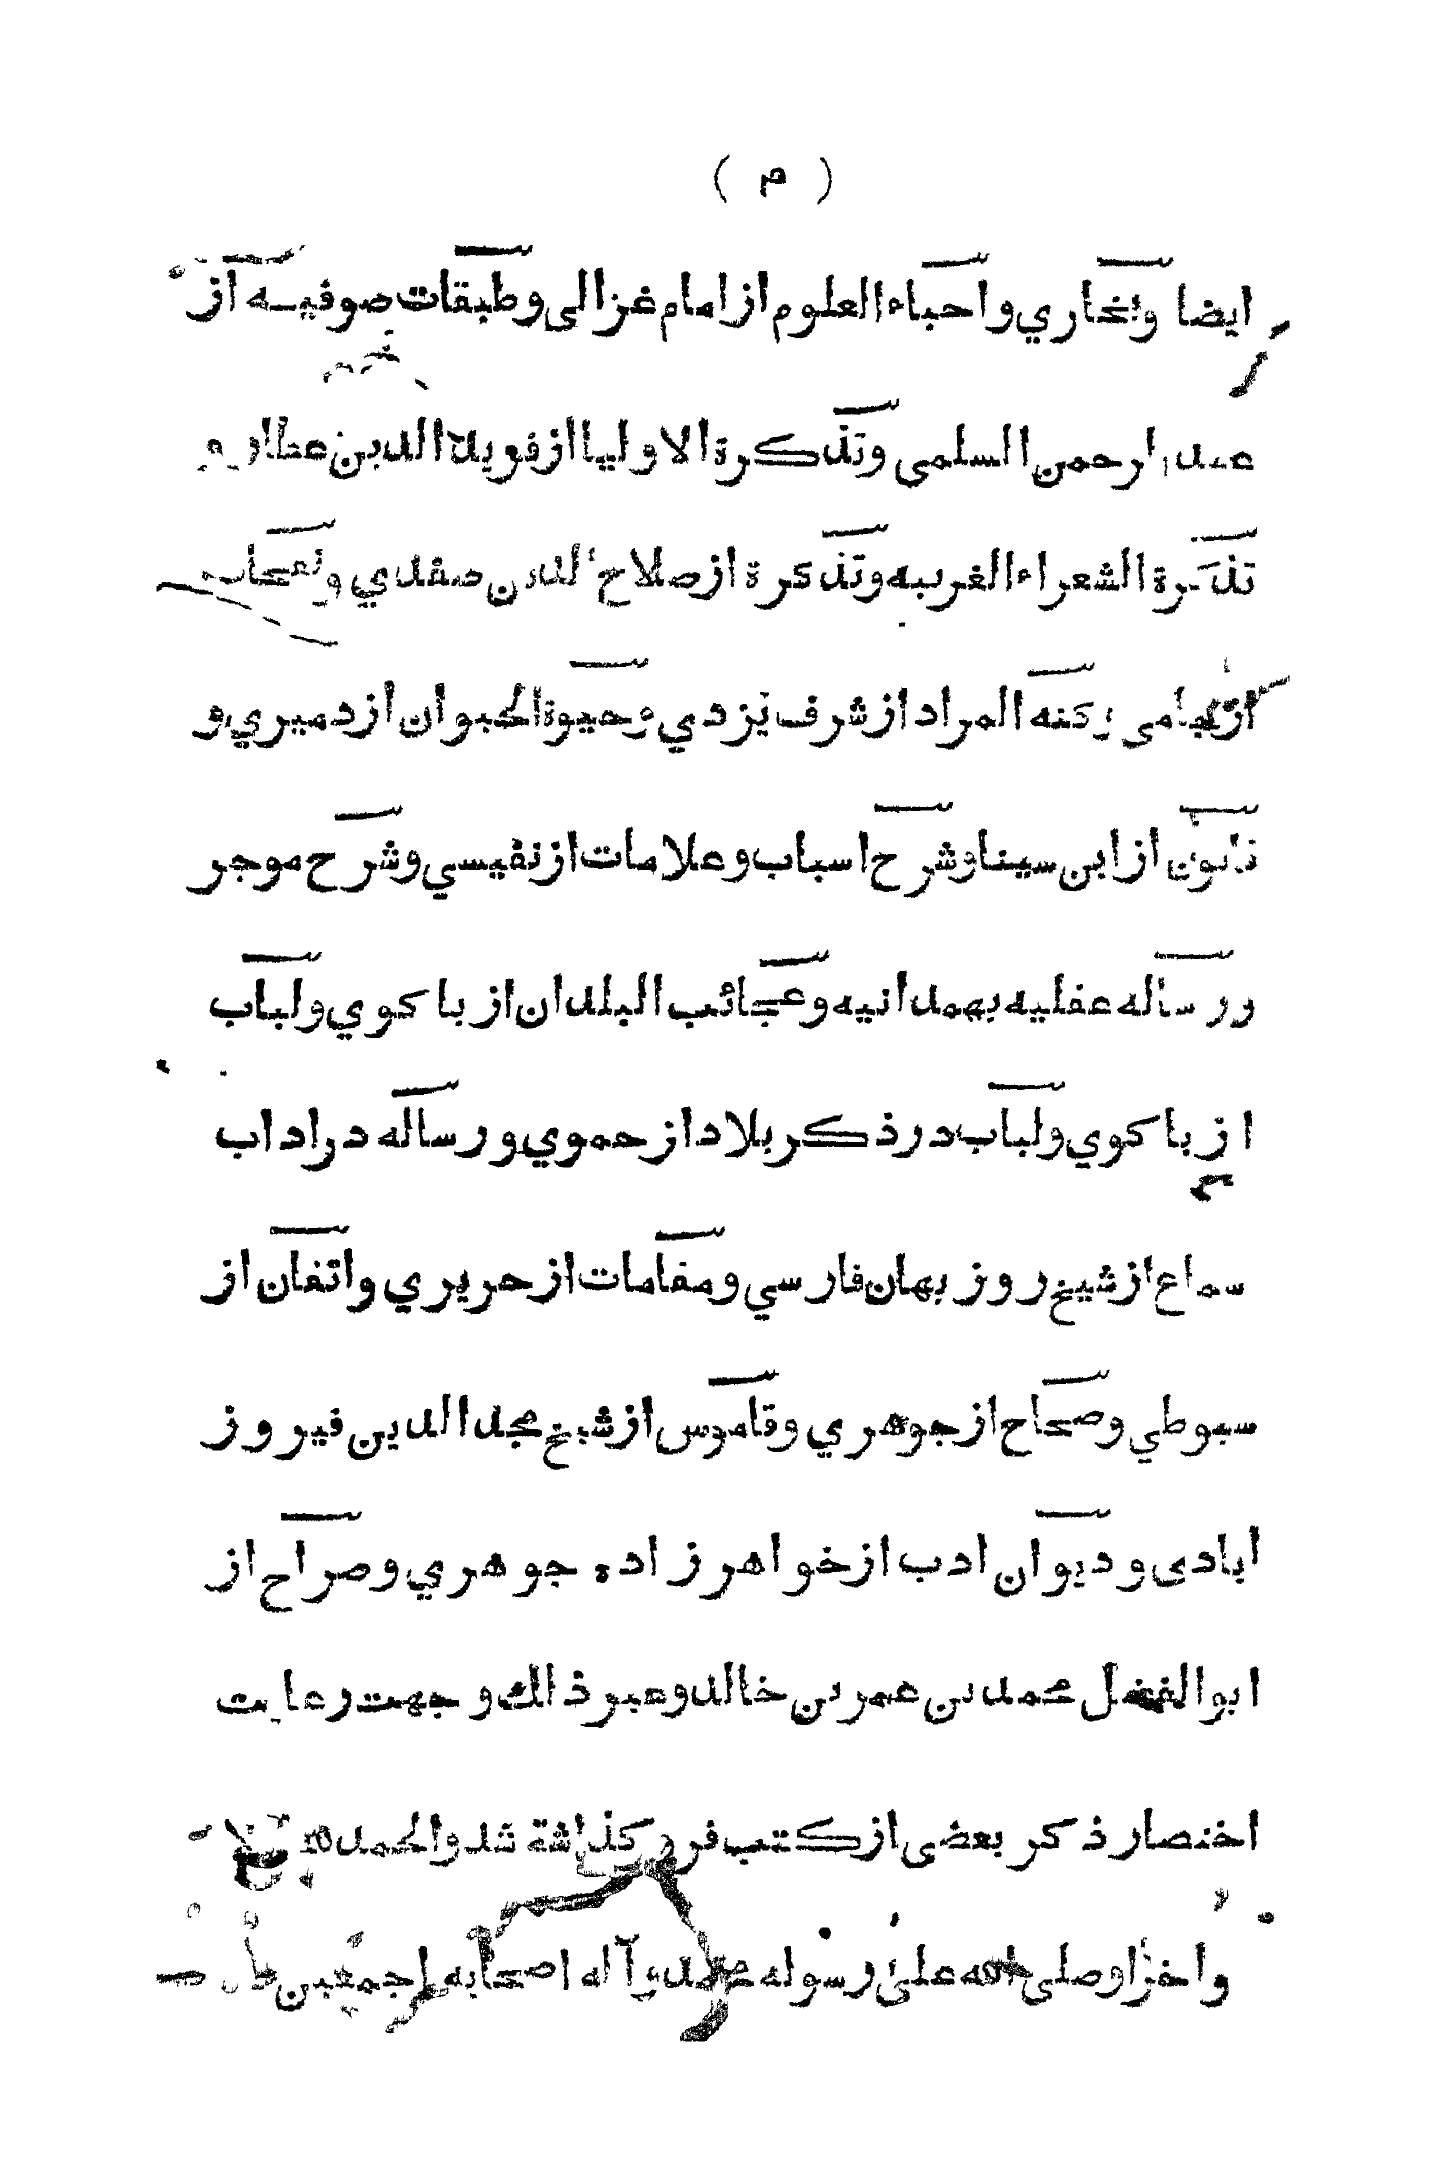 ( م )
ايضا وبخاري واحياء العلوم از امام غزالی وطبقات صوفيه از
عبد الرحمن السلمی وتذكرة الاوليا از فريد الدين عطار و
تذكرة الشعراء الغريبه وتذكرة از صلاح الدين صفدي ونفحات
از جامی وكنه المراد از شرف يزدي و حيوة الحيوان از دميري و
قانون از ابن سينا وشرح اسباب وعلامات از نفيسي وشرح موجز
ورساله عقليه بهمدانيه وعجائب البلدان از باكوي ولباب
از باكوي ولباب در ذكر بلاد از حموي ورساله در اداب
سماع از شيخ روز بهان فارسي ومقامات از حريري واتقان از
سيوطي وصحاح از جوهري وقاموس از شيخ مجد الدين فيروز
ابادی وديوان ادب از خواهر زاده جوهري وصراح از
ابو الفضل محمد بن عمر بن خالد وغير ذالك وجهت رعايت
اختصار ذكر بعضی از كتب فروگذاشته شد والحمد لله
واخرا وصلی الله علی رسوله محمد وآله اصحابه اجمعين